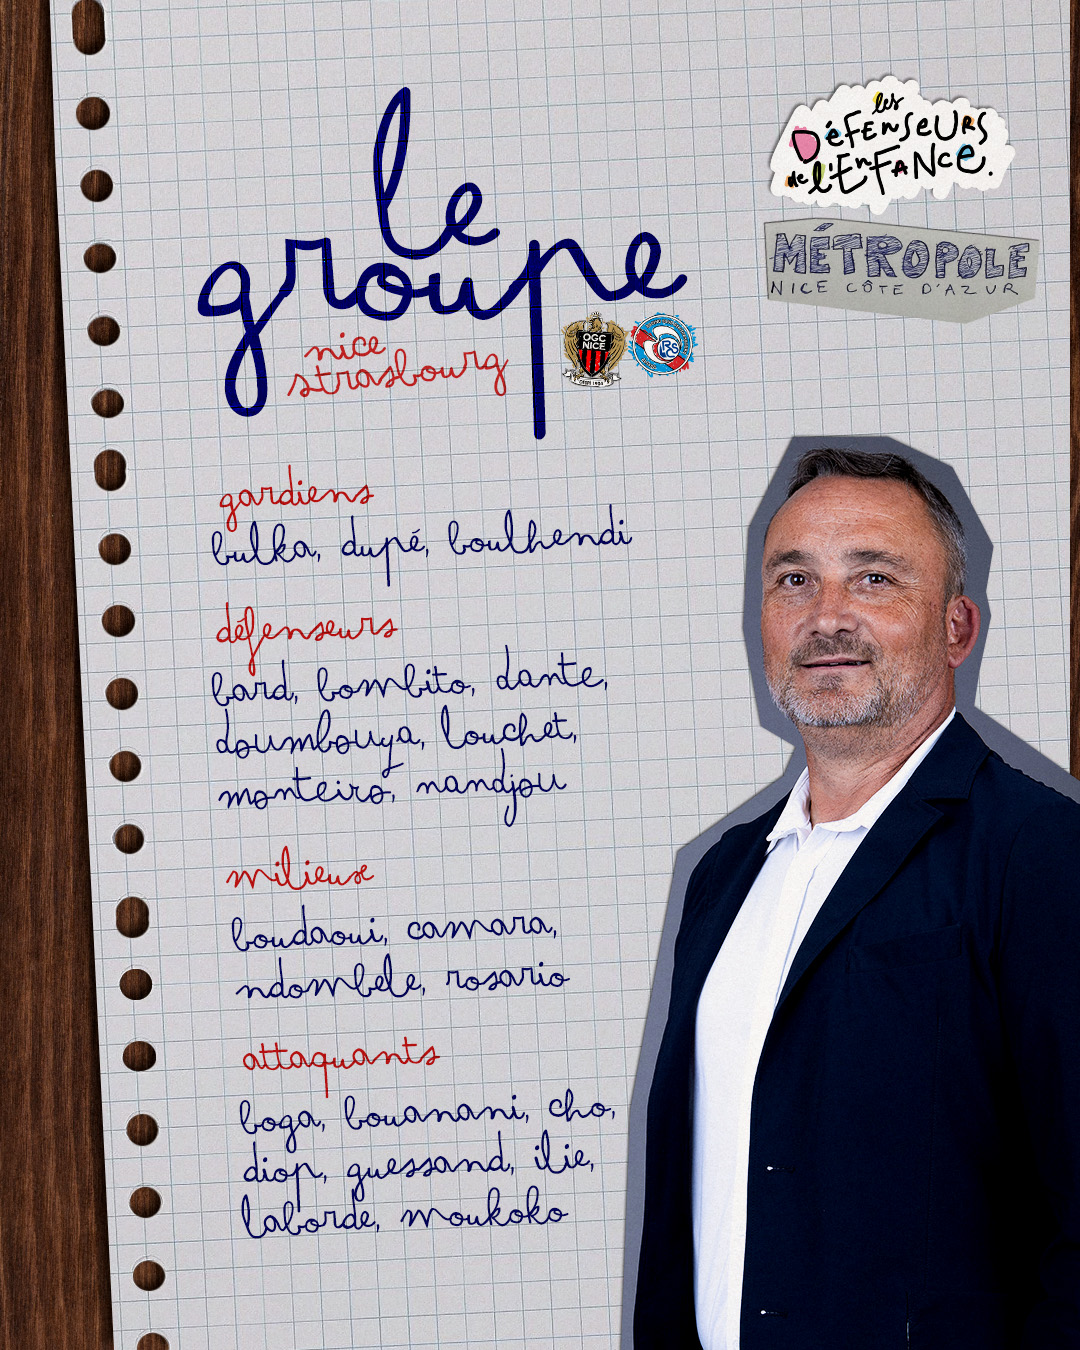 les
Défenseurs
de l'Enfance.
MÉTROPOLE
NICE CÔTE D'AZUR
le
groupe
nice
strasbourg
OGC
NICE
gardiens
bulka, dupé, boulhendi
défenseurs
bard, bombito, dante,
doumbouya, louchet,
monteiro, nandjou
milieux
boudaoui, camara,
ndombele, rosario
attaquants
boga, bouanani, cho,
diop, guessand, ilie,
laborde, moukoko